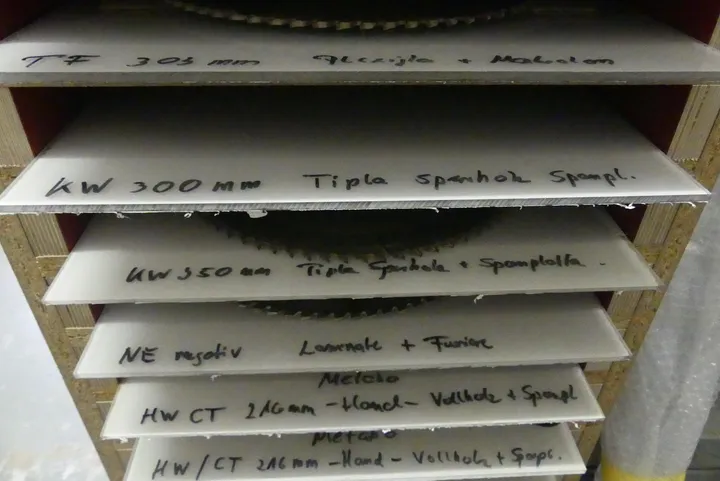 TF 303 mm Plexigla + Makrolon
KW 300 mm Tipla Sperrholz Spanpl.
KW 350 mm Tipla Sperrholz + Spanplatte.
NE negativ Laminate + Furniere
Metabo
HW CT 216 mm - Hand - Vollholz + Spanpl
Metabo
HW/CT 216 mm - Hand - Vollholz + Spanpl.